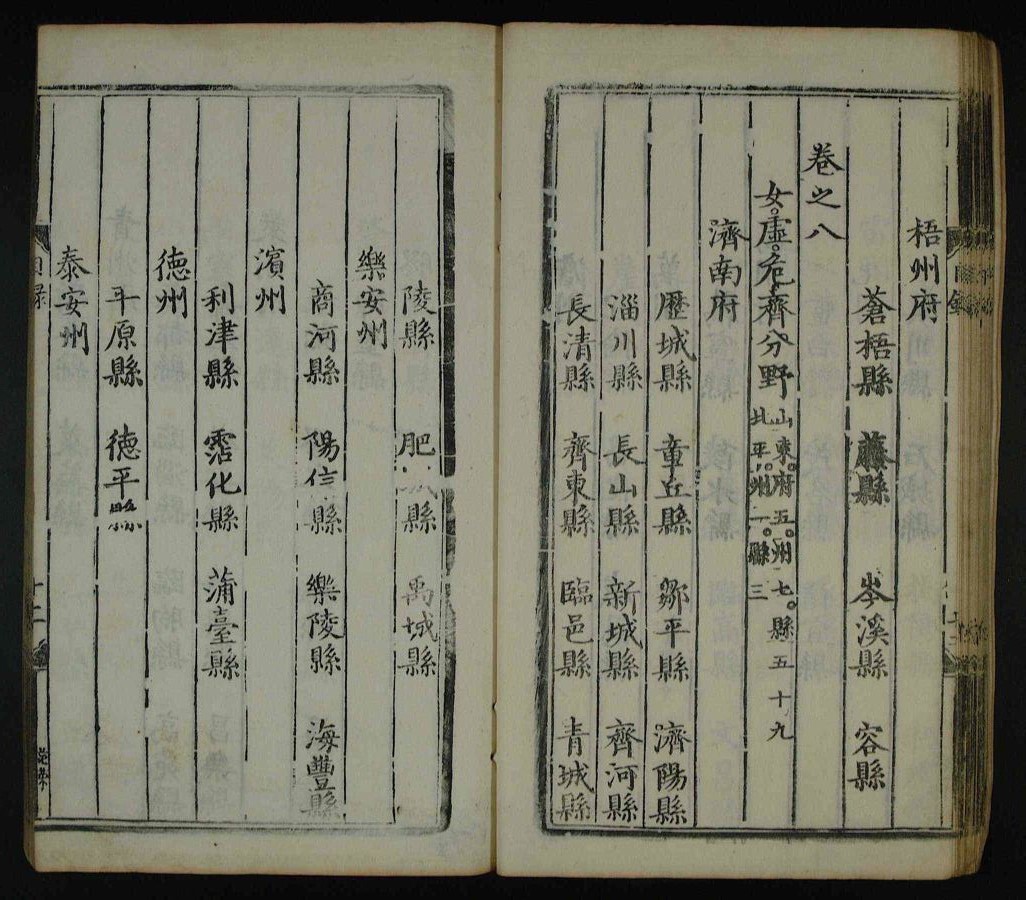 梧州府
蒼梧縣 藤縣 岑溪縣 容縣
卷之八
女。虛。危。齊分野 山東。府五。州七。縣五十九 北平。州一。縣三
濟南府
歷城縣 章丘縣 鄒平縣 濟陽縣
淄川縣 長山縣 新城縣 齊河縣
長清縣 齊東縣 臨邑縣 青城縣
陵縣 肥城縣 禹城縣
樂安州
商河縣 陽信縣 樂陵縣 海豐縣
濱州
利津縣 霑化縣 蒲臺縣
德州
平原縣 德平縣
泰安州
目錄
十二